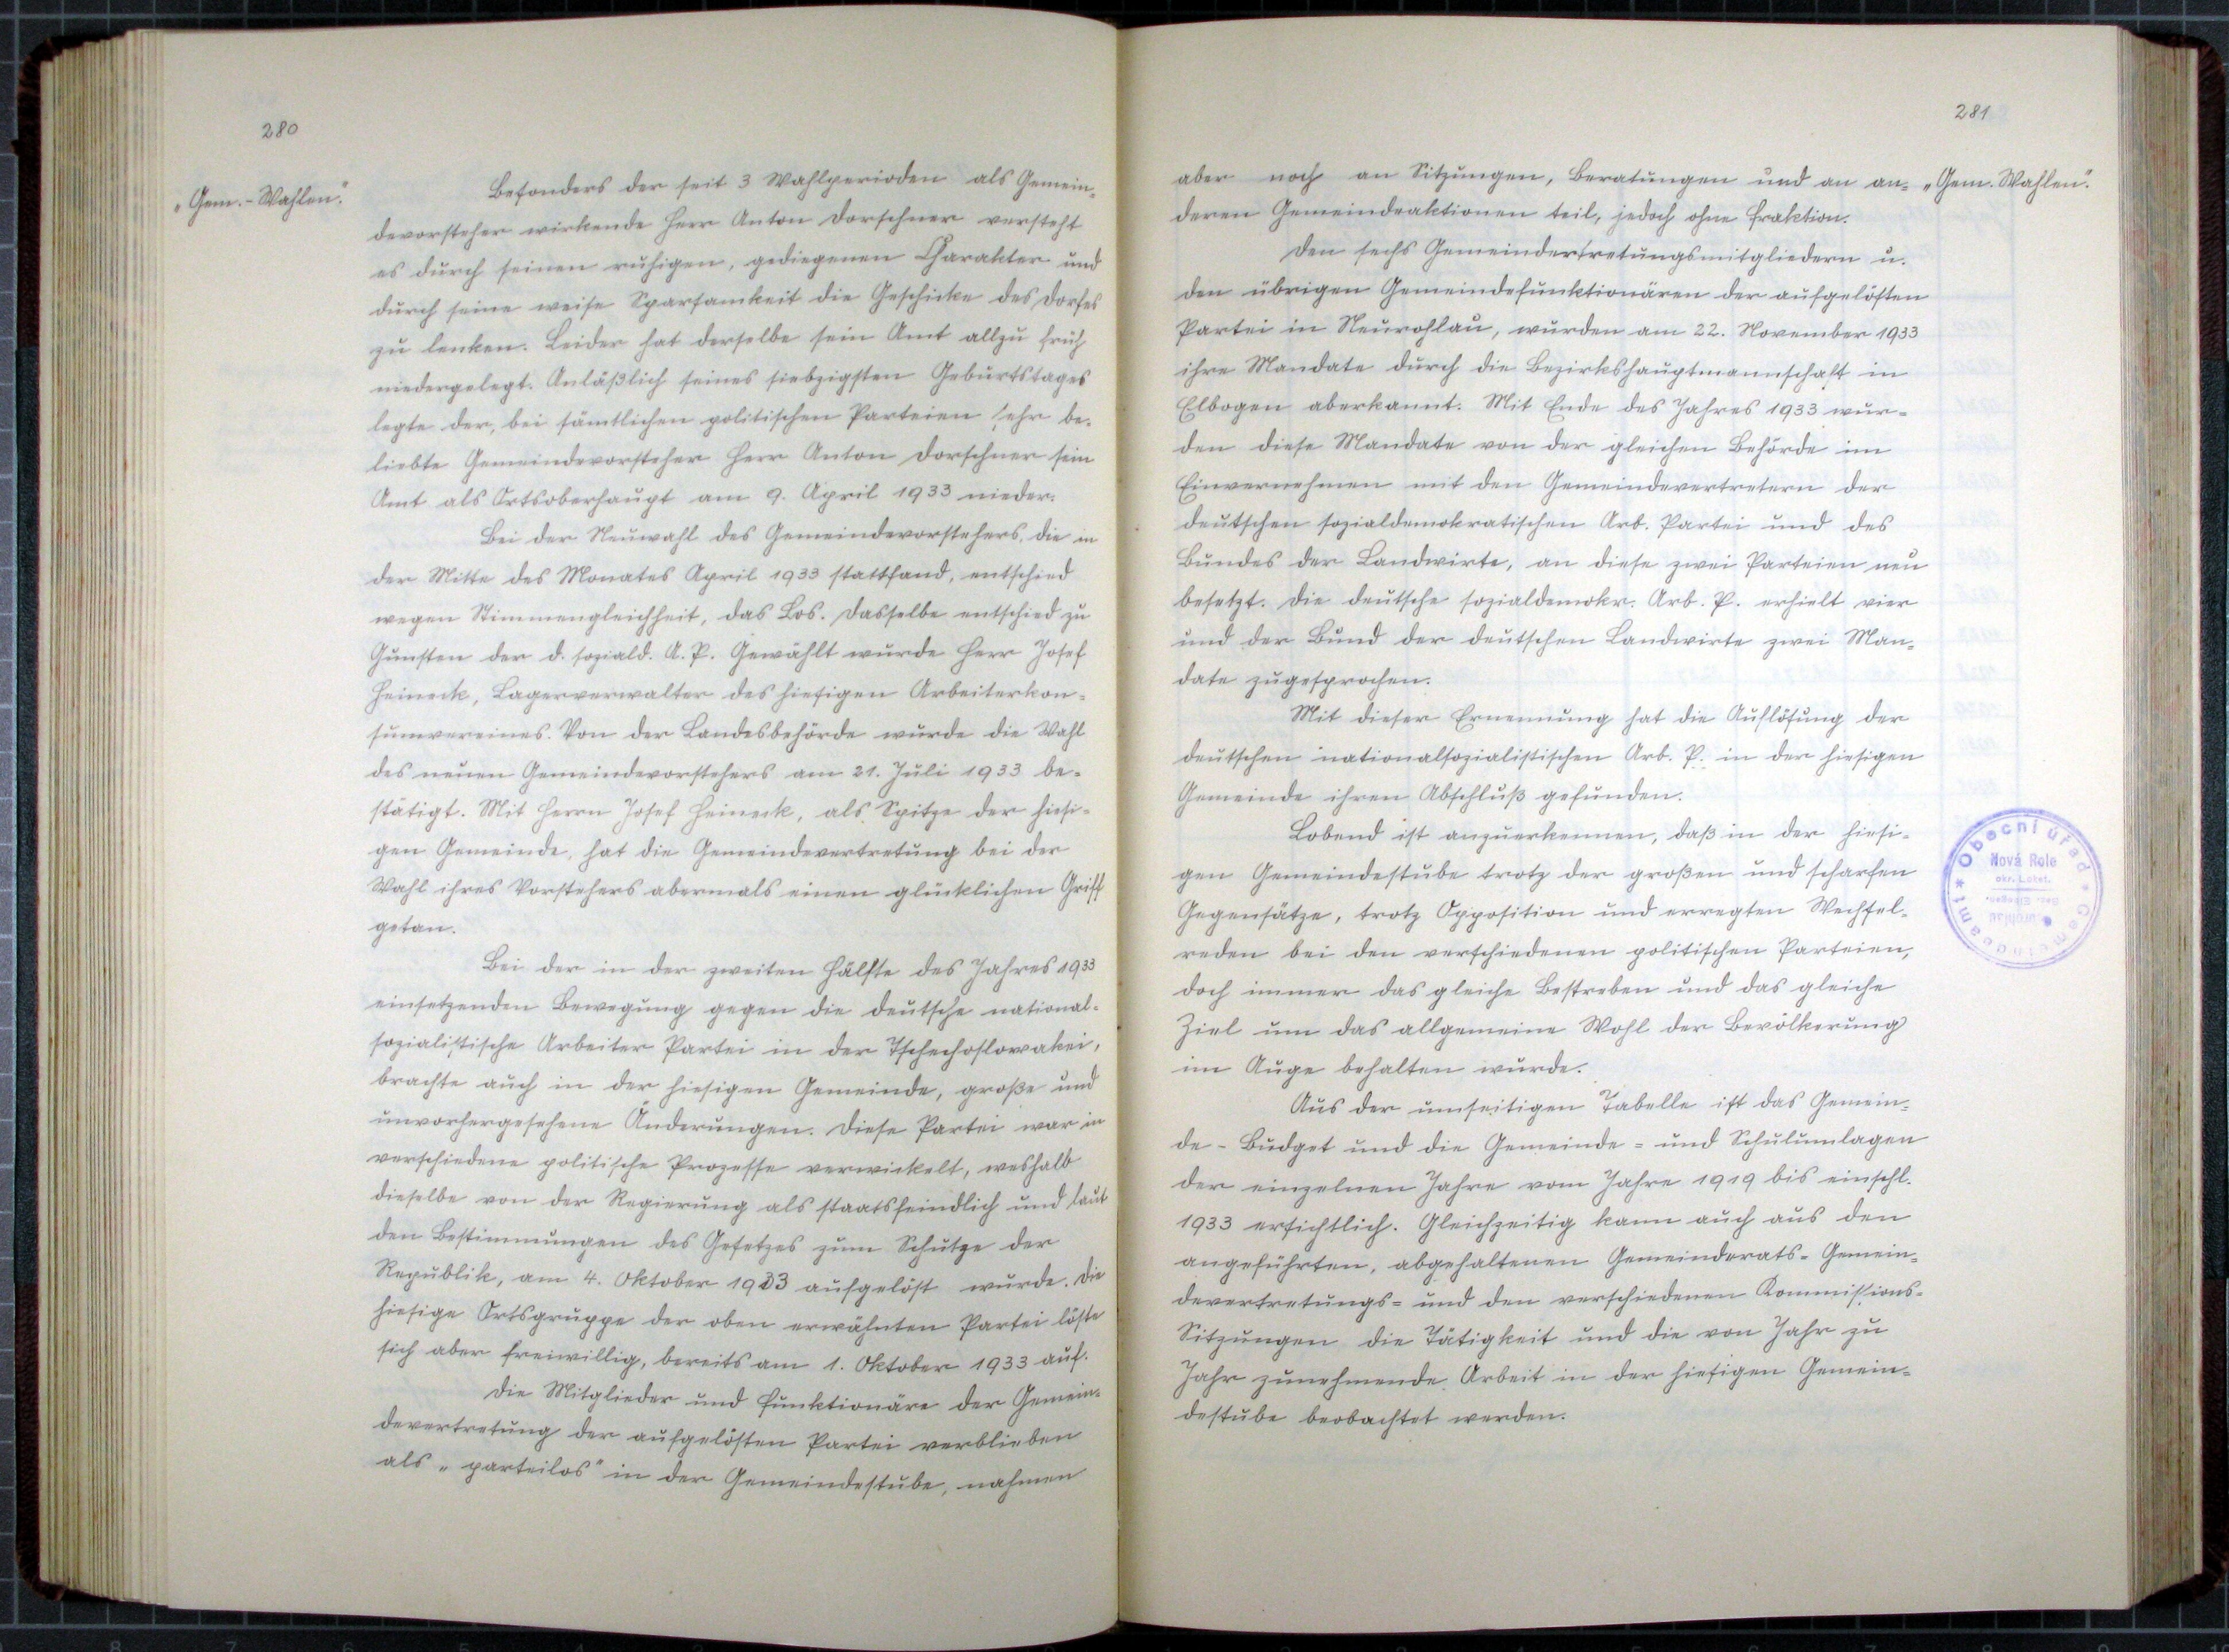 280
„Gem.-Wahlen".
Besonders der seit 3 Wahlperioden als Gemein-
devorsteher wirkende Herr Anton Dorschner versteht
es durch seinen ruhigen, gediegenen Charakter und
durch seine weise Sparsamkeit die Geschicke des Dorfes
zu lenken. Leider hat derselbe sein Amt allzu früh
niedergelegt. Anläßlich seines siebzigsten Geburtstages
legte der, bei sämtlichen politischen Parteien sehr be-
liebte Gemeindevorsteher Herr Anton Dorschner sein
Amt als Ortsoberhaupt am 9. April 1933 nieder.
Bei der Neuwahl des Gemeindevorstehers, die in
der Mitte des Monates April 1933 stattfand, entschied
wegen Stimmengleichheit, das Los. Dasselbe entschied zu
Gunsten der d. soziald. A. P. Gewählt wurde Herr Josef
Heineck, Lagerverwalter des hiesigen Arbeiterkon-
sumvereines. Von der Landesbehörde wurde die Wahl
des neuen Gemeindevorstehers am 21. Juli 1933 be-
stätigt. Mit Herrn Josef Heineck, als Spitze der hiesi-
gen Gemeinde, hat die Gemeindevertretung bei der
Wahl ihres Vorstehers abermals einen glücklichen Griff
getan.
Bei der in der zweiten Hälfte des Jahres 1933
einsetzenden Bewegung gegen die deutsche national-
sozialistische Arbeiter Partei in der Tschechoslowakei,
brachte auch in der hiesigen Gemeinde, große und
unvorhergesehene Änderungen. Diese Partei war in
verschiedene politische Prozesse verwickelt, weshalb
dieselbe von der Regierung als staatsfeindlich und laut
den Bestimmungen des Gesetzes zum Schutze der
Republik, am 4. Oktober 1933 aufgelöst wurde. Die
hiesige Ortsgruppe der oben erwähnten Partei löste
sich aber freiwillig, bereits am 1. Oktober 1933 auf.
Die Mitglieder und Funktionäre der Gemein-
devertretung der aufgelösten Partei verblieben
als „parteilos" in der Gemeindestube, nahmen
281
„Gem. Wahlen".
aber noch an Sitzungen, Beratungen und an an-
deren Gemeindeaktionen teil, jedoch ohne Fraktion.
Den sechs Gemeindertretungsmitgliedern u.
den übrigen Gemeindefunktionären der aufgelösten
Partei in Neurohlau, wurden am 22. November 1933
ihre Mandate durch die Bezirkshauptmannschaft in
Elbogen aberkannt. Mit Ende des Jahres 1933 wur-
den diese Mandate von der gleichen Behörde im
Einvernehmen mit den Gemeindevertretern der
deutschen sozialdemokratischen Arb. Partei und des
Bundes der Landwirte, an diese zwei Parteien neu
besetzt. Die deutsche sozialdemokr. Arb. P. erhielt vier
und der Bund der deutschen Landwirte zwei Man-
date zugesprochen.
Mit dieser Ernennung hat die Auflösung der
deutschen nationalsozialistischen Arb. P. in der hiesigen
Gemeinde ihren Abschluß gefunden.
Lobend ist anzuerkennen, daß in der hiesi-
gen Gemeindestube trotz der großen und scharfen
Gegensätze, trotz Opposition und erregten Wechsel-
reden bei den verschiedenen politischen Parteien,
doch immer das gleiche Bestreben und das gleiche
Ziel um das allgemeine Wohl der Bevölkerung
im Auge behalten wurde.
Aus der umseitigen Tabelle ist das Gemein-
de-Budget und die Gemeinde- und Schulumlagen
der einzelnen Jahre vom Jahre 1919 bis einschl.
1933 ersichtlich. Gleichzeitig kann auch aus den
angeführten, abgehaltenen Gemeinderats- Gemein-
devertretungs- und den verschiedenen Kommissions-
Sitzungen die Tätigkeit und die von Jahr zu
Jahr zunehmende Arbeit in der hiesigen Gemein-
destube beobachtet werden.
Obecní úřad * Gemeindeamt *
Nová Role
okr. Loket.